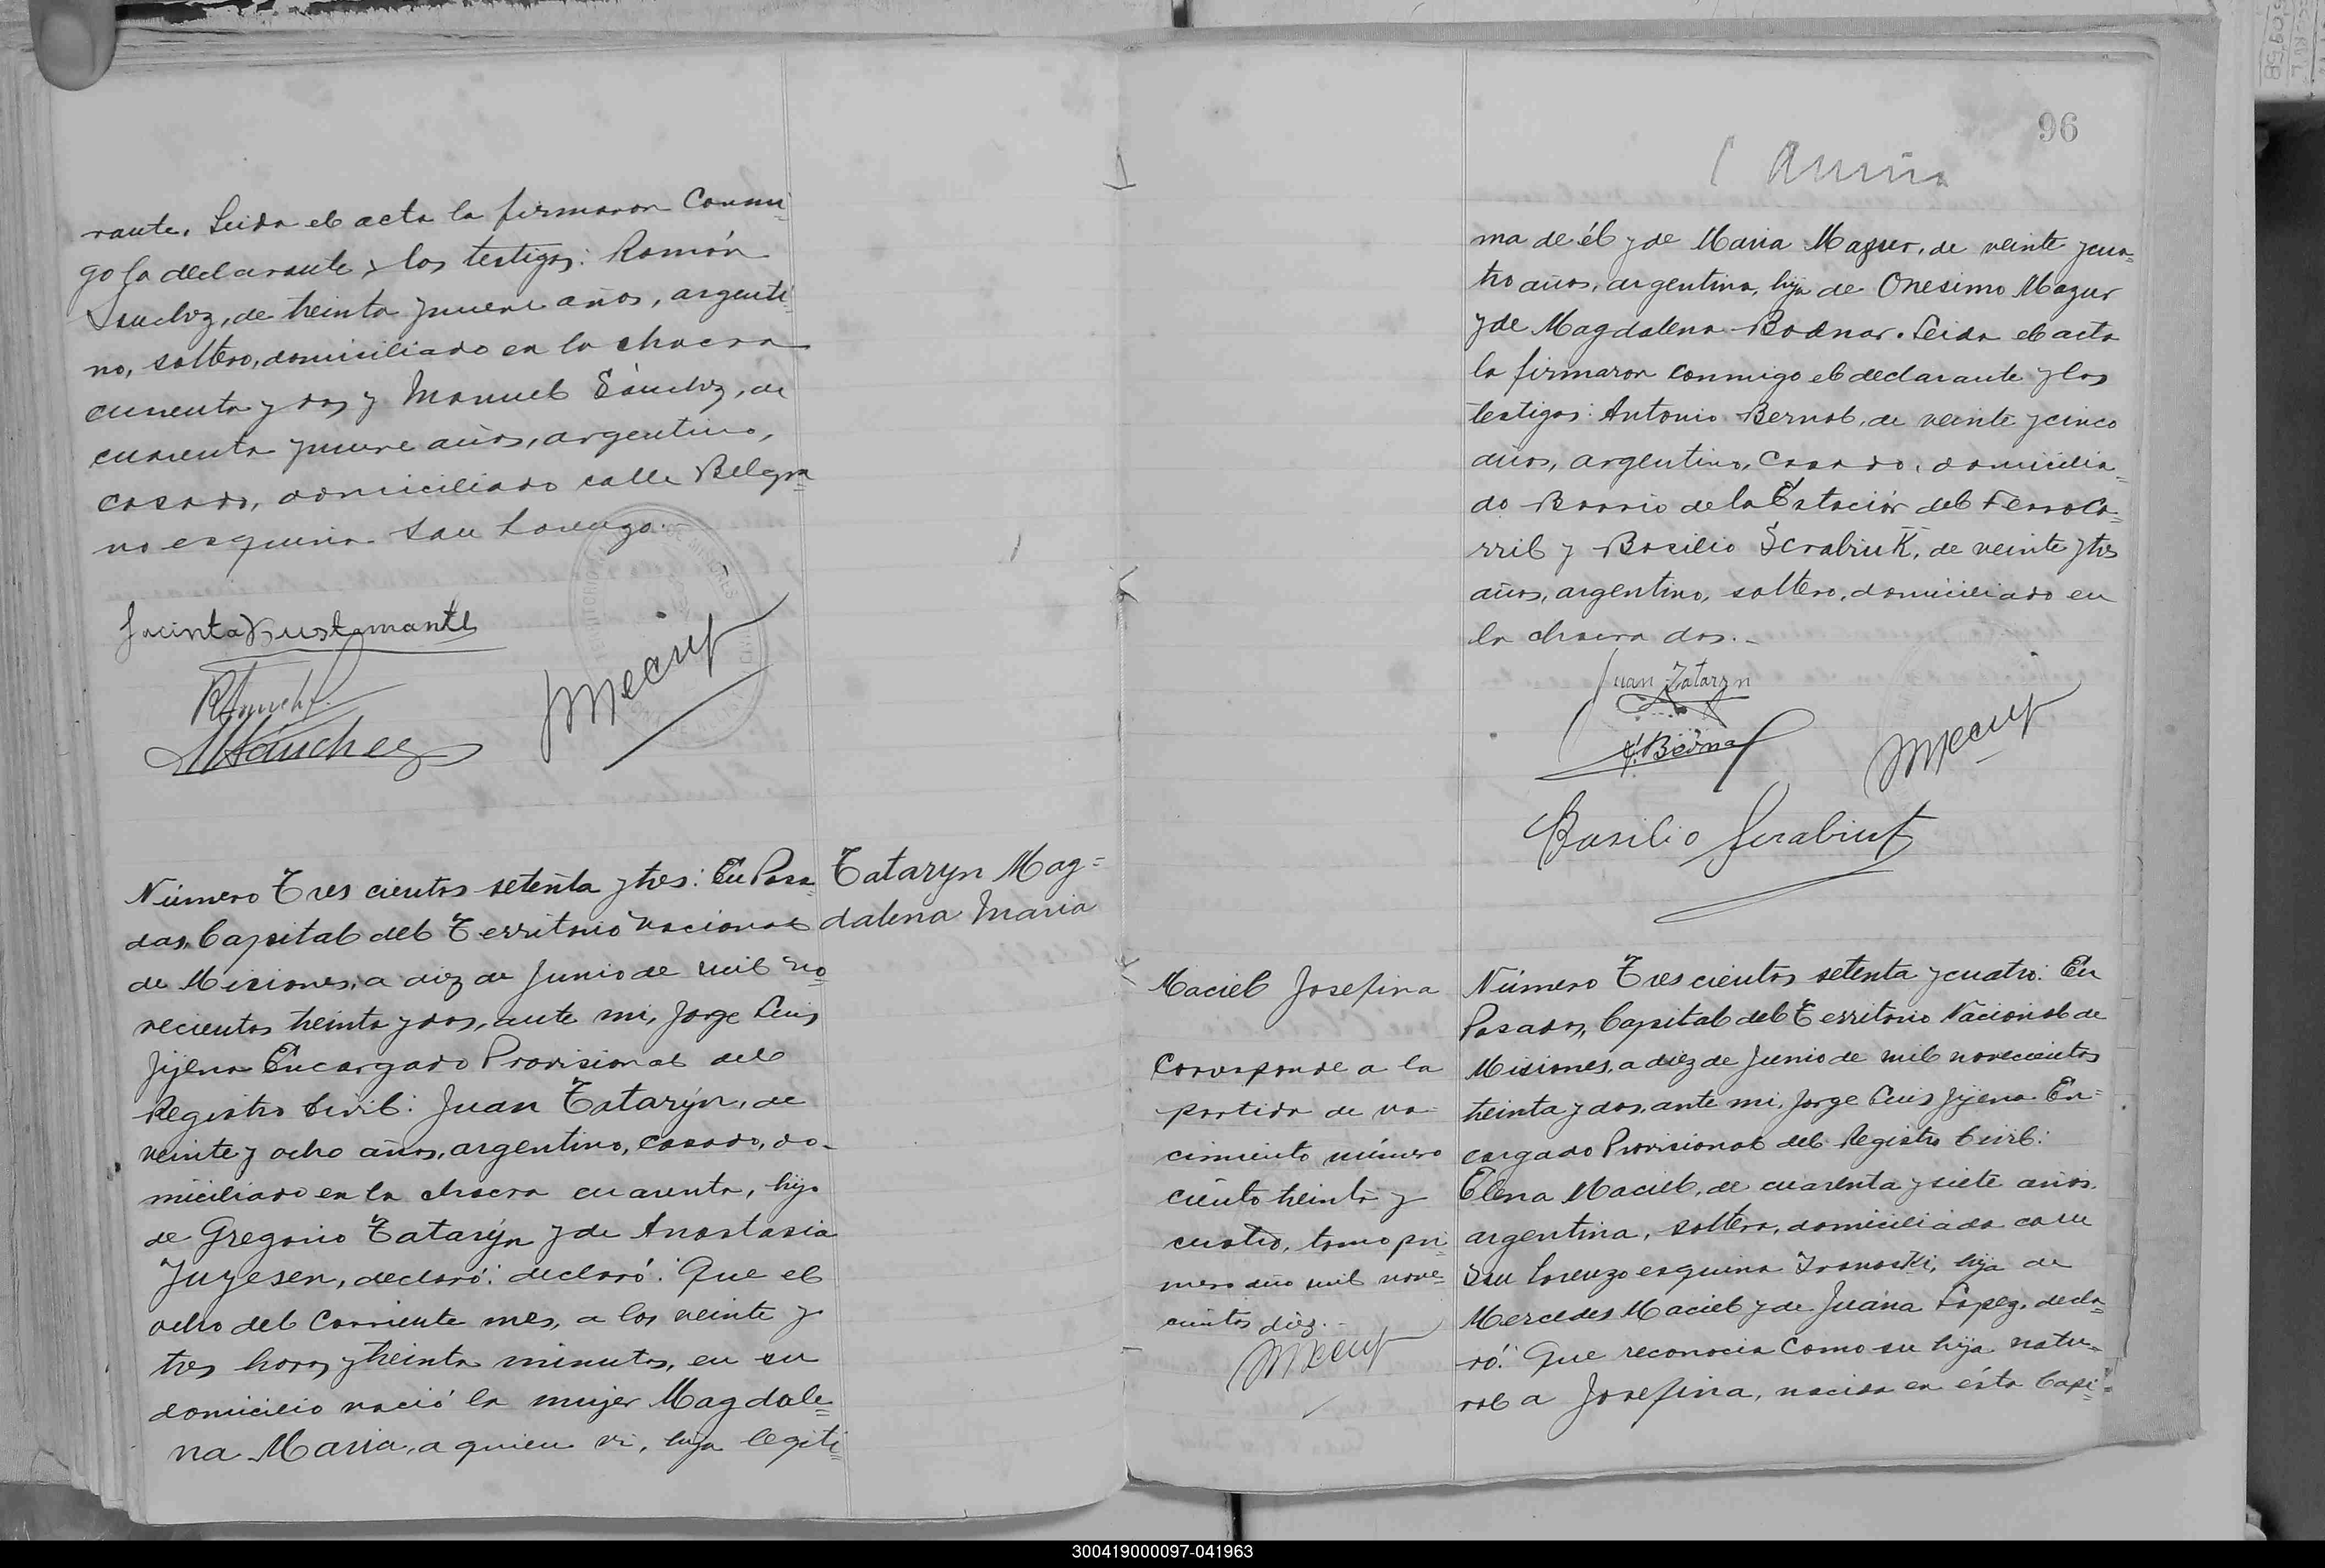 rante. Leida el acta la firmaron conmi-
go la declarante y los testigos: Ramón
Sanchez, de treinta y nueve años, argenti-
no, soltero, domiciliado en la chacra
cuarenta y dos y Manuel Sánchez, de
cuarenta y nueve años, argentino,
casado, domiciliado calle Belgra=
no esquina San Lorenzo.
Jacinta Bustamante
R Sanchz
M Sanchez
Número Tres cientos setenta y tres: En Posa-
das, Capital del Territorio Nacional
de Misiones, a diez de Junio de mil no-
vecientos treinta y dos, ante mi, Jorge Luis
Jijena Encargado Provisional del
Registro Civil: Juan Tataryn, de
veinte y ocho años, argentino, casado, do-
miciliado en la chacra cuarenta, hijo
de Gregorio Tataryn y de Anastasia
Juzesen, declaró: declaró: Que el
ocho del corriente mes, a los veinte y
tres horas y treinta minutos, en su
domicilio nació la mujer Magdale=
na Maria, a quien vi, hija legiti=
Tataryn Mag=
dalena Maria
96
ma de él y de Maria Mazur, de veinte y cua=
tro años, argentina, hija de Onesimo Mazur
y de Magdalena Bodnar. Leida el acta
la firmaron conmigo el declarante y los
testigos: Antonio Bernal, de veinte y cinco
años, argentino, casado, domicilia-
do Barrio de la Estación del Ferroca-
rril y Basilio Scrabiuk, de veinte y tres
años, argentino, soltero, domiciliado en
la chacra dos.-
Juan Tataryn
A. Bernal
Basilio Scrabiuk
Maciel Josefina
Corresponde a la
partida de na-
cimiento número
ciento treinta y
cuatro, tomo pri-
mero año mil nove=
cientos diez.-
Número Tres cientos setenta y cuatro: En
Posadas, Capital del Territorio Nacional de
Misiones, a diez de Junio de mil novecientos
treinta y dos, ante mi, Jorge Luis Jijena En=
cargado Provisional del Registro Civil:
Elena Maciel, de cuarenta y siete años,
argentina, soltera, domiciliada calle
San Lorenzo esquina Iranaski, hija de
Mercedes Maciel y de Juana Lopez, decla=
ró: Que reconocia como su hija natu-
ral a Josefina, nacida en ésta Capi=
300419000097-041963